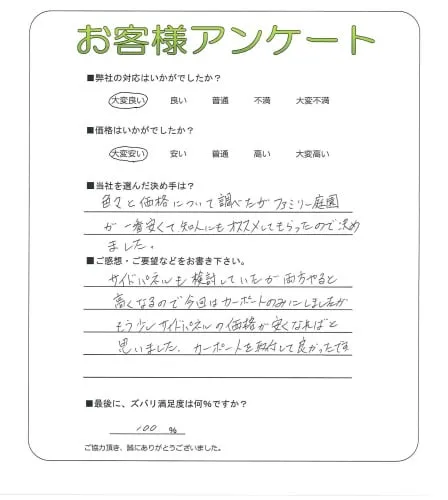 お客様アンケート
■弊社の対応はいかがでしたか？
大変良い 良い 普通 不満 大変不満
■価格はいかがでしたか？
大変安い 安い 普通 高い 大変高い
■当社を選んだ決め手は？
色々と価格について調べたがファミリー庭園
が一番安くて知人にもオススメしてもらったので決め
ました。
■ご感想・ご要望などをお書き下さい。
サイドパネルも検討していたが両方やると
高くなるので今回はカーポートのみにしましたが
もう少しサイドパネルの価格が安くなればと
思いました。カーポートを取付して良かったです
■最後に、ズバリ満足度は何％ですか？
100 %
ご協力頂き、誠にありがとうございました。